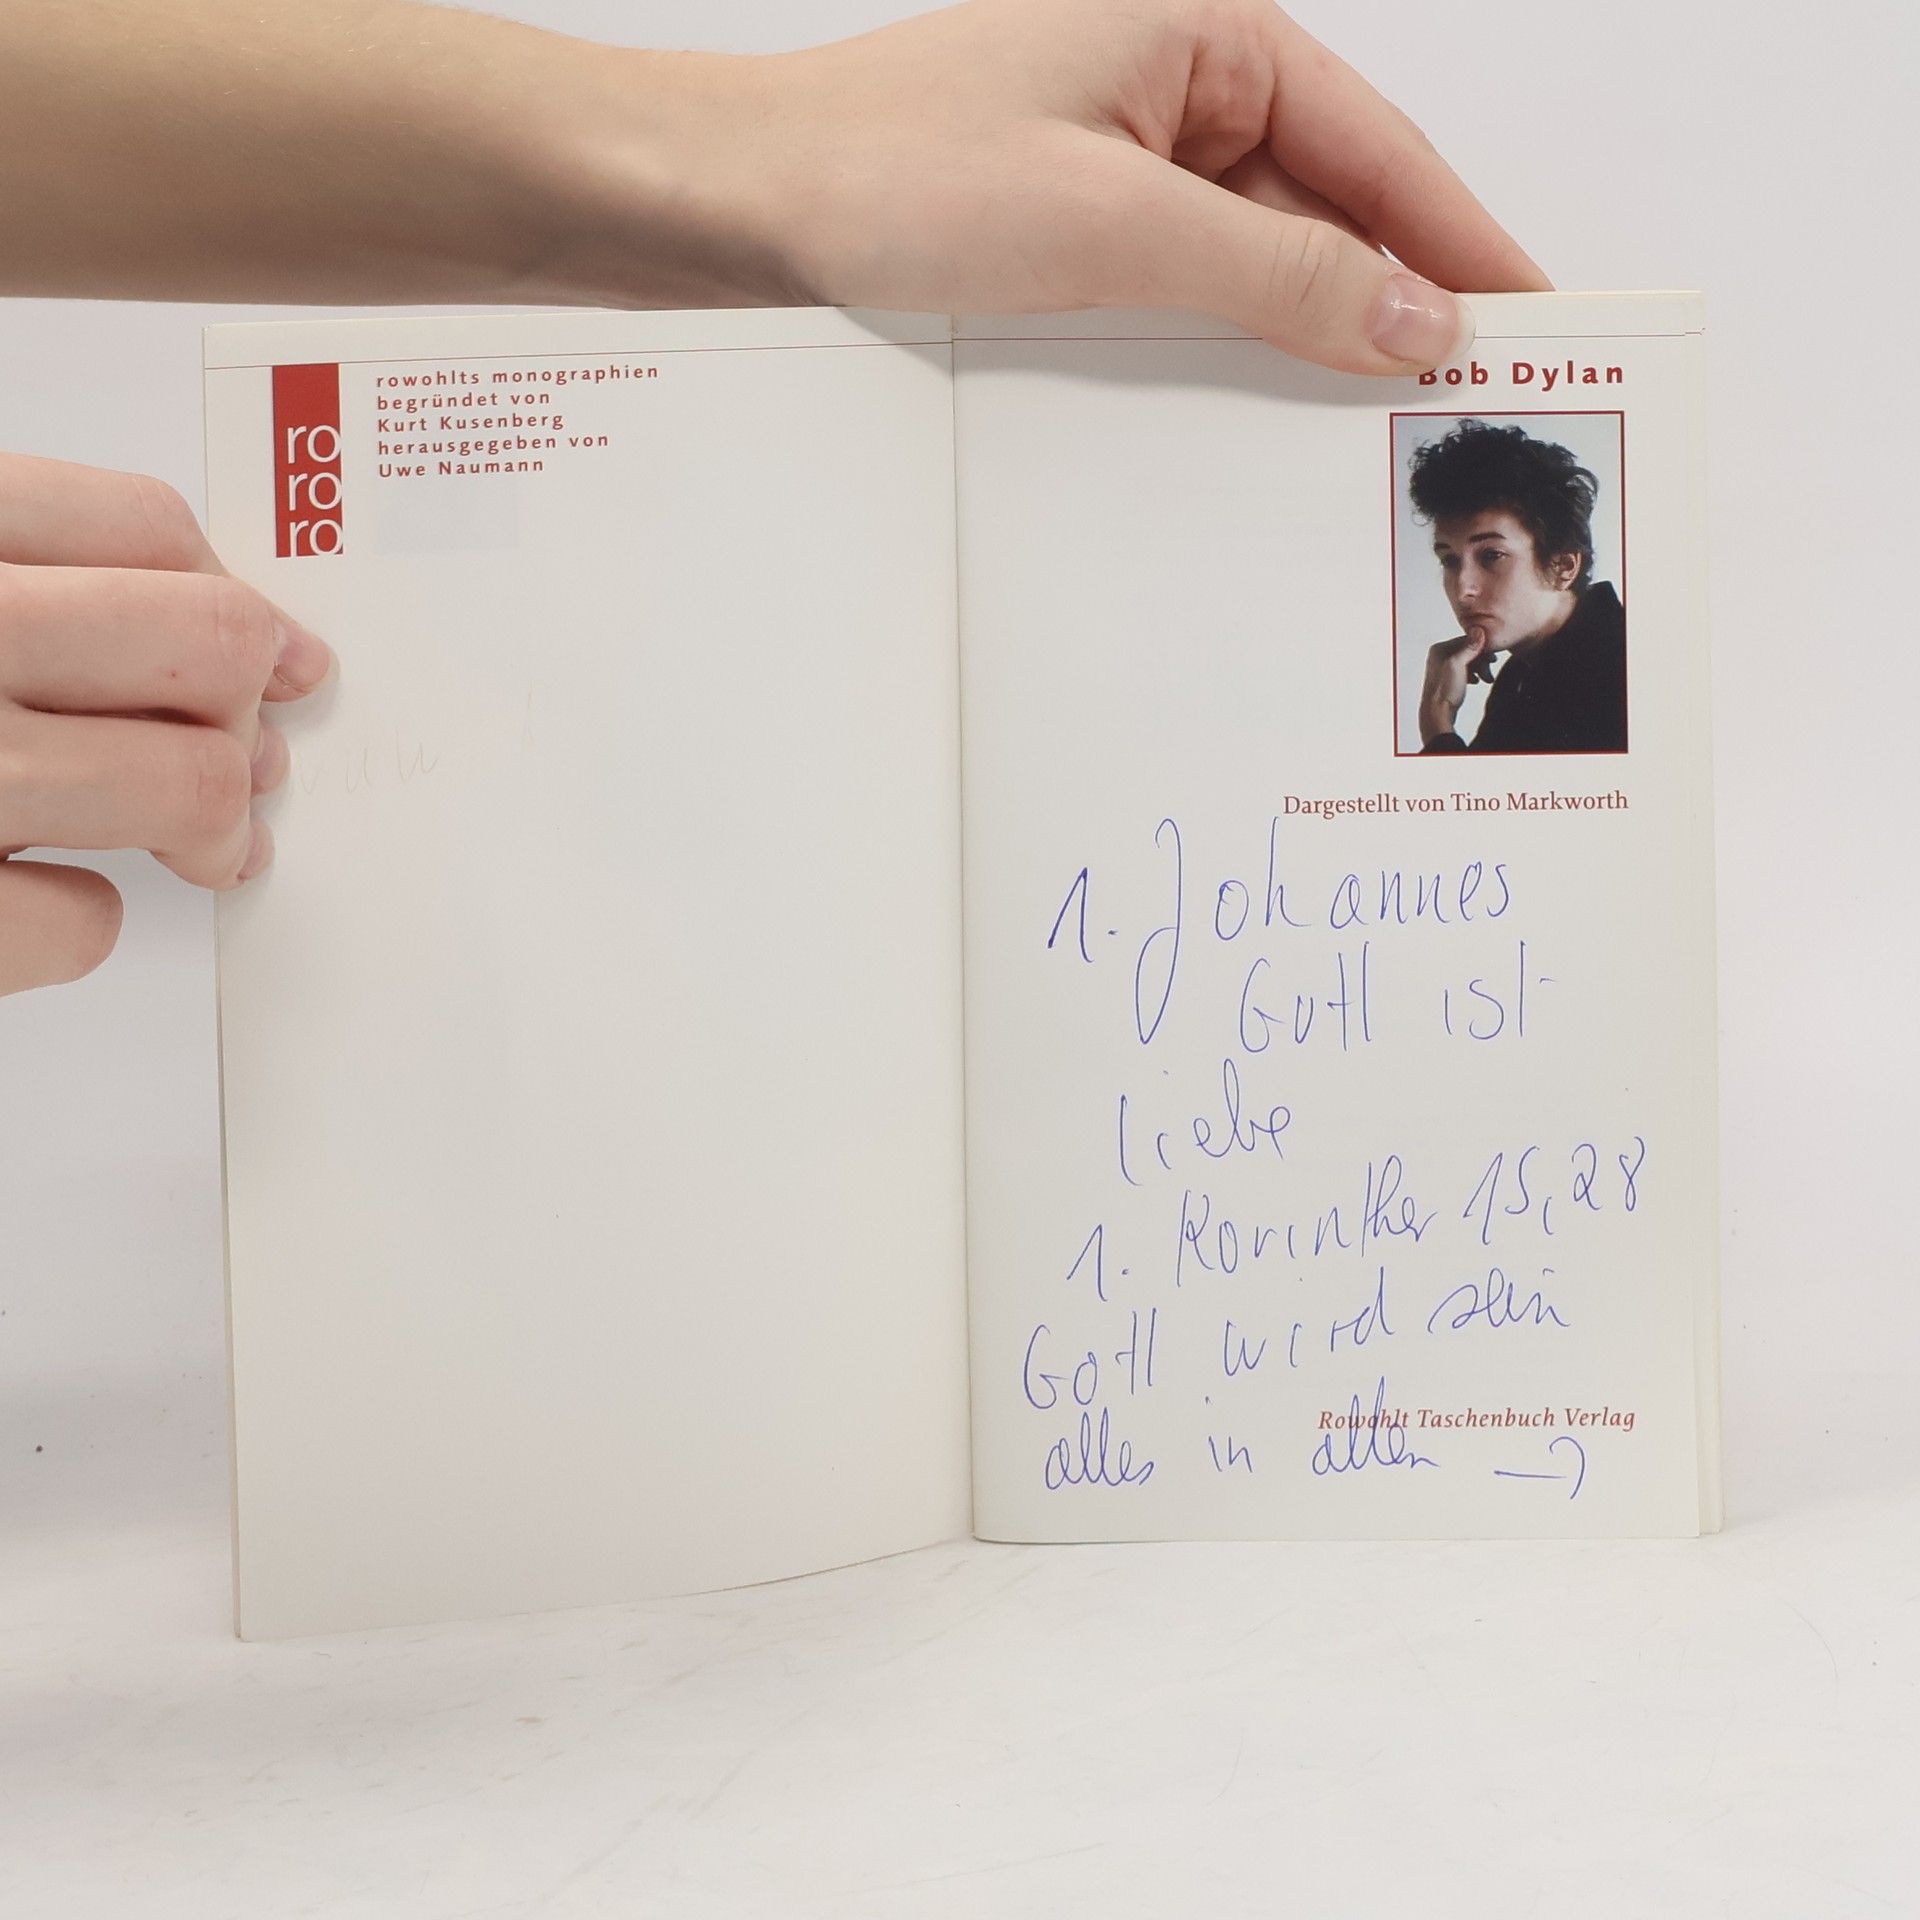 rowohlts monographien
begründet von
Kurt Kusenberg
herausgegeben von
Uwe Naumann
ro
ro
ro
Bob Dylan
Dargestellt von Tino Markworth
1. Johannes
Gott ist
liebe
1. Korinther 15,28
Gott wird sein
alles in allen
Rowohlt Taschenbuch Verlag